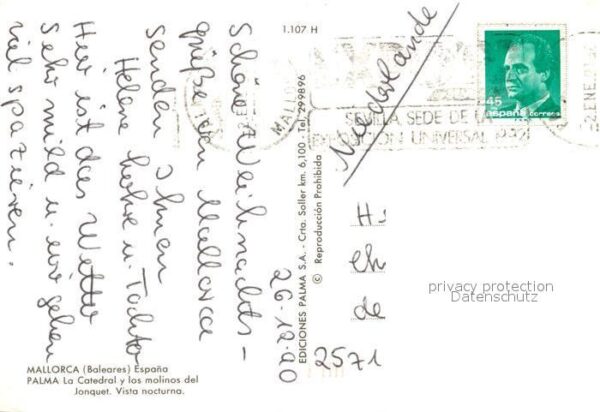 1.107 H
Schöne Weihnachts-
grüße von Mallorca
senden Ihnen
Helene u. Tochter
Hier ist das Wetter
sehr mild u. wir gehen
viel spazieren.
26.12.90
MALLORCA (Baleares) España
PALMA La Catedral y los molinos del
Jonquet. Vista nocturna.
EDICIONES PALMA S.A. - Crta. Soller km. 6,100 - Tel. 299896
© Reproducción Prohibida
MALLO
SEVILLA SEDE DE LA
EXPOSICION UNIVERSAL 1992
45
españa correos
2 ENE
Niederlande
H
Ch
de
2571
privacy protection
Datenschutz